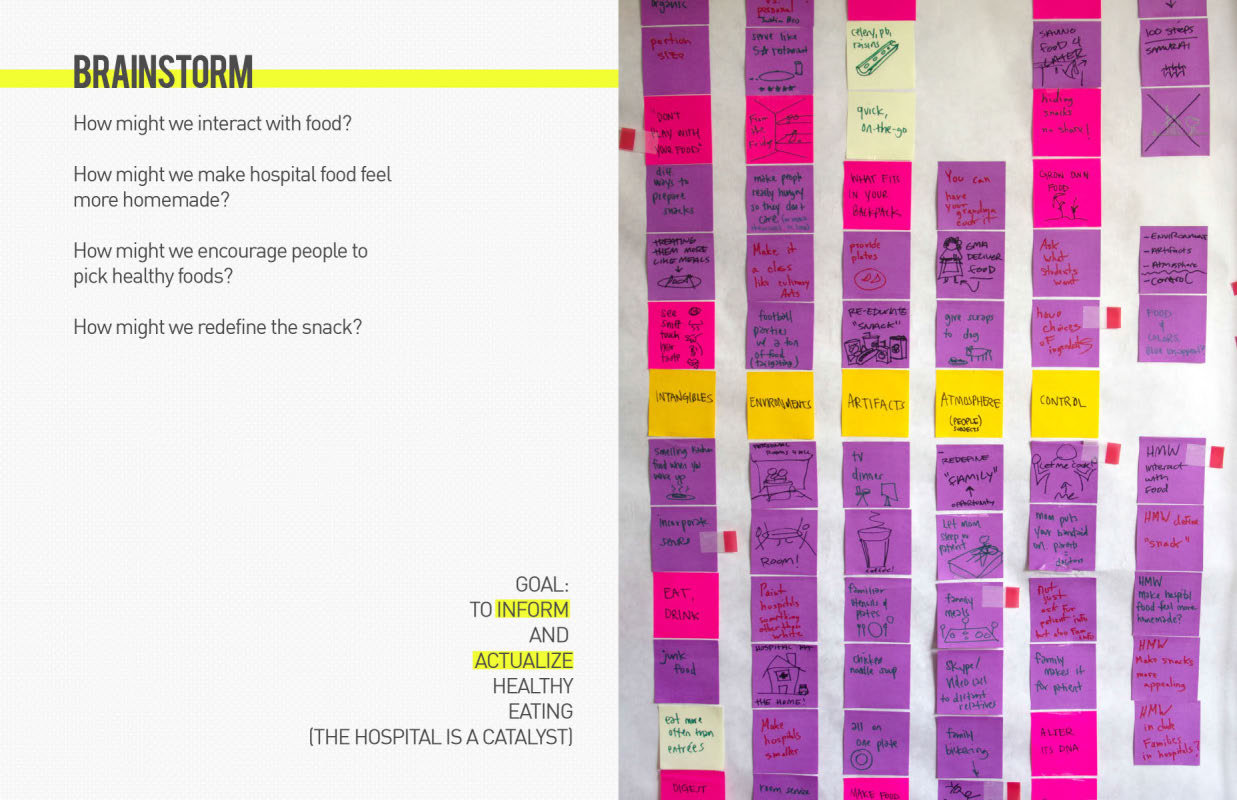 BRAINSTORM
How might we interact with food?
How might we make hospital food feel
more homemade?
How might we encourage people to
pick healthy foods?
How might we redefine the snack?
GOAL:
TO INFORM
AND
ACTUALIZE
HEALTHY
EATING
(THE HOSPITAL IS A CATALYST)
organic
portion
size
"DON'T
PLAY WITH
YOUR FOOD"
diff.
ways to
prepare
snacks
TREATING
THEM MORE
LIKE MEALS
see
smell
touch
hear
taste
INTANGIBLES
smelling
food when you
wake up
incorporate
EAT,
DRINK
junk
food
eat more
often than
entrées
DIGEST
vs.
personal
serve like
5★ restaurant
From
the
Fridge
make people
really hungry
so they don't
care
Make it
a class
like culinary
Arts
football
parties
w/ a ton
of food
(tailgating)
ENVIRONMENTS
PERSONAL
ROOMS
ROOM!
Paint
hospitals
something
other than
white
HOSPITAL
THE HOME!
Make
hospitals
smaller
room service
celery, pb,
raisins
quick,
on-the-go
WHAT FITS
IN YOUR
BACKPACK
provide
plates
RE-EDUCATE
"SNACK"
ARTIFACTS
tv
dinner
coffee!
familiar
utensils &
plates
chicken
noodle soup
all on
one plate
MAKE FOOD
You can
have
your
grandma
cook it
GMA
DELIVER
FOOD
give scraps
to dog
ATMOSPHERE
(PEOPLE)
SUBJECTS
REDEFINE
"FAMILY"
opportunity
Let mom
sleep w/
patient
family
meals
SKYPE/
Video call
to distant
relatives
family
bickering
SAVING
FOOD 4
LATER
hiding
snacks
no share!
GROW OWN
FOOD
Ask
what
students
want
have
choices
of
ingredients
CONTROL
Let me cook!
me
mom puts
your bandaid
on. parents
=
doctors
Not
just
ask for
patient info
but also fam info
family
makes it
for patient
ALTER
ITS DNA
100 STEPS
SAMURAI
- ENVIRONMENT
- Artifacts
- Atmosphere
- CONTROL
FOOD
&
COLORS
Blue unappeal?
HMW
interact
with
Food
HMW define
"snack"
HMW
make hospital
food feel more
homemade?
HMW
Make snacks
more
appealing
HMW
include
Families
in hospitals?